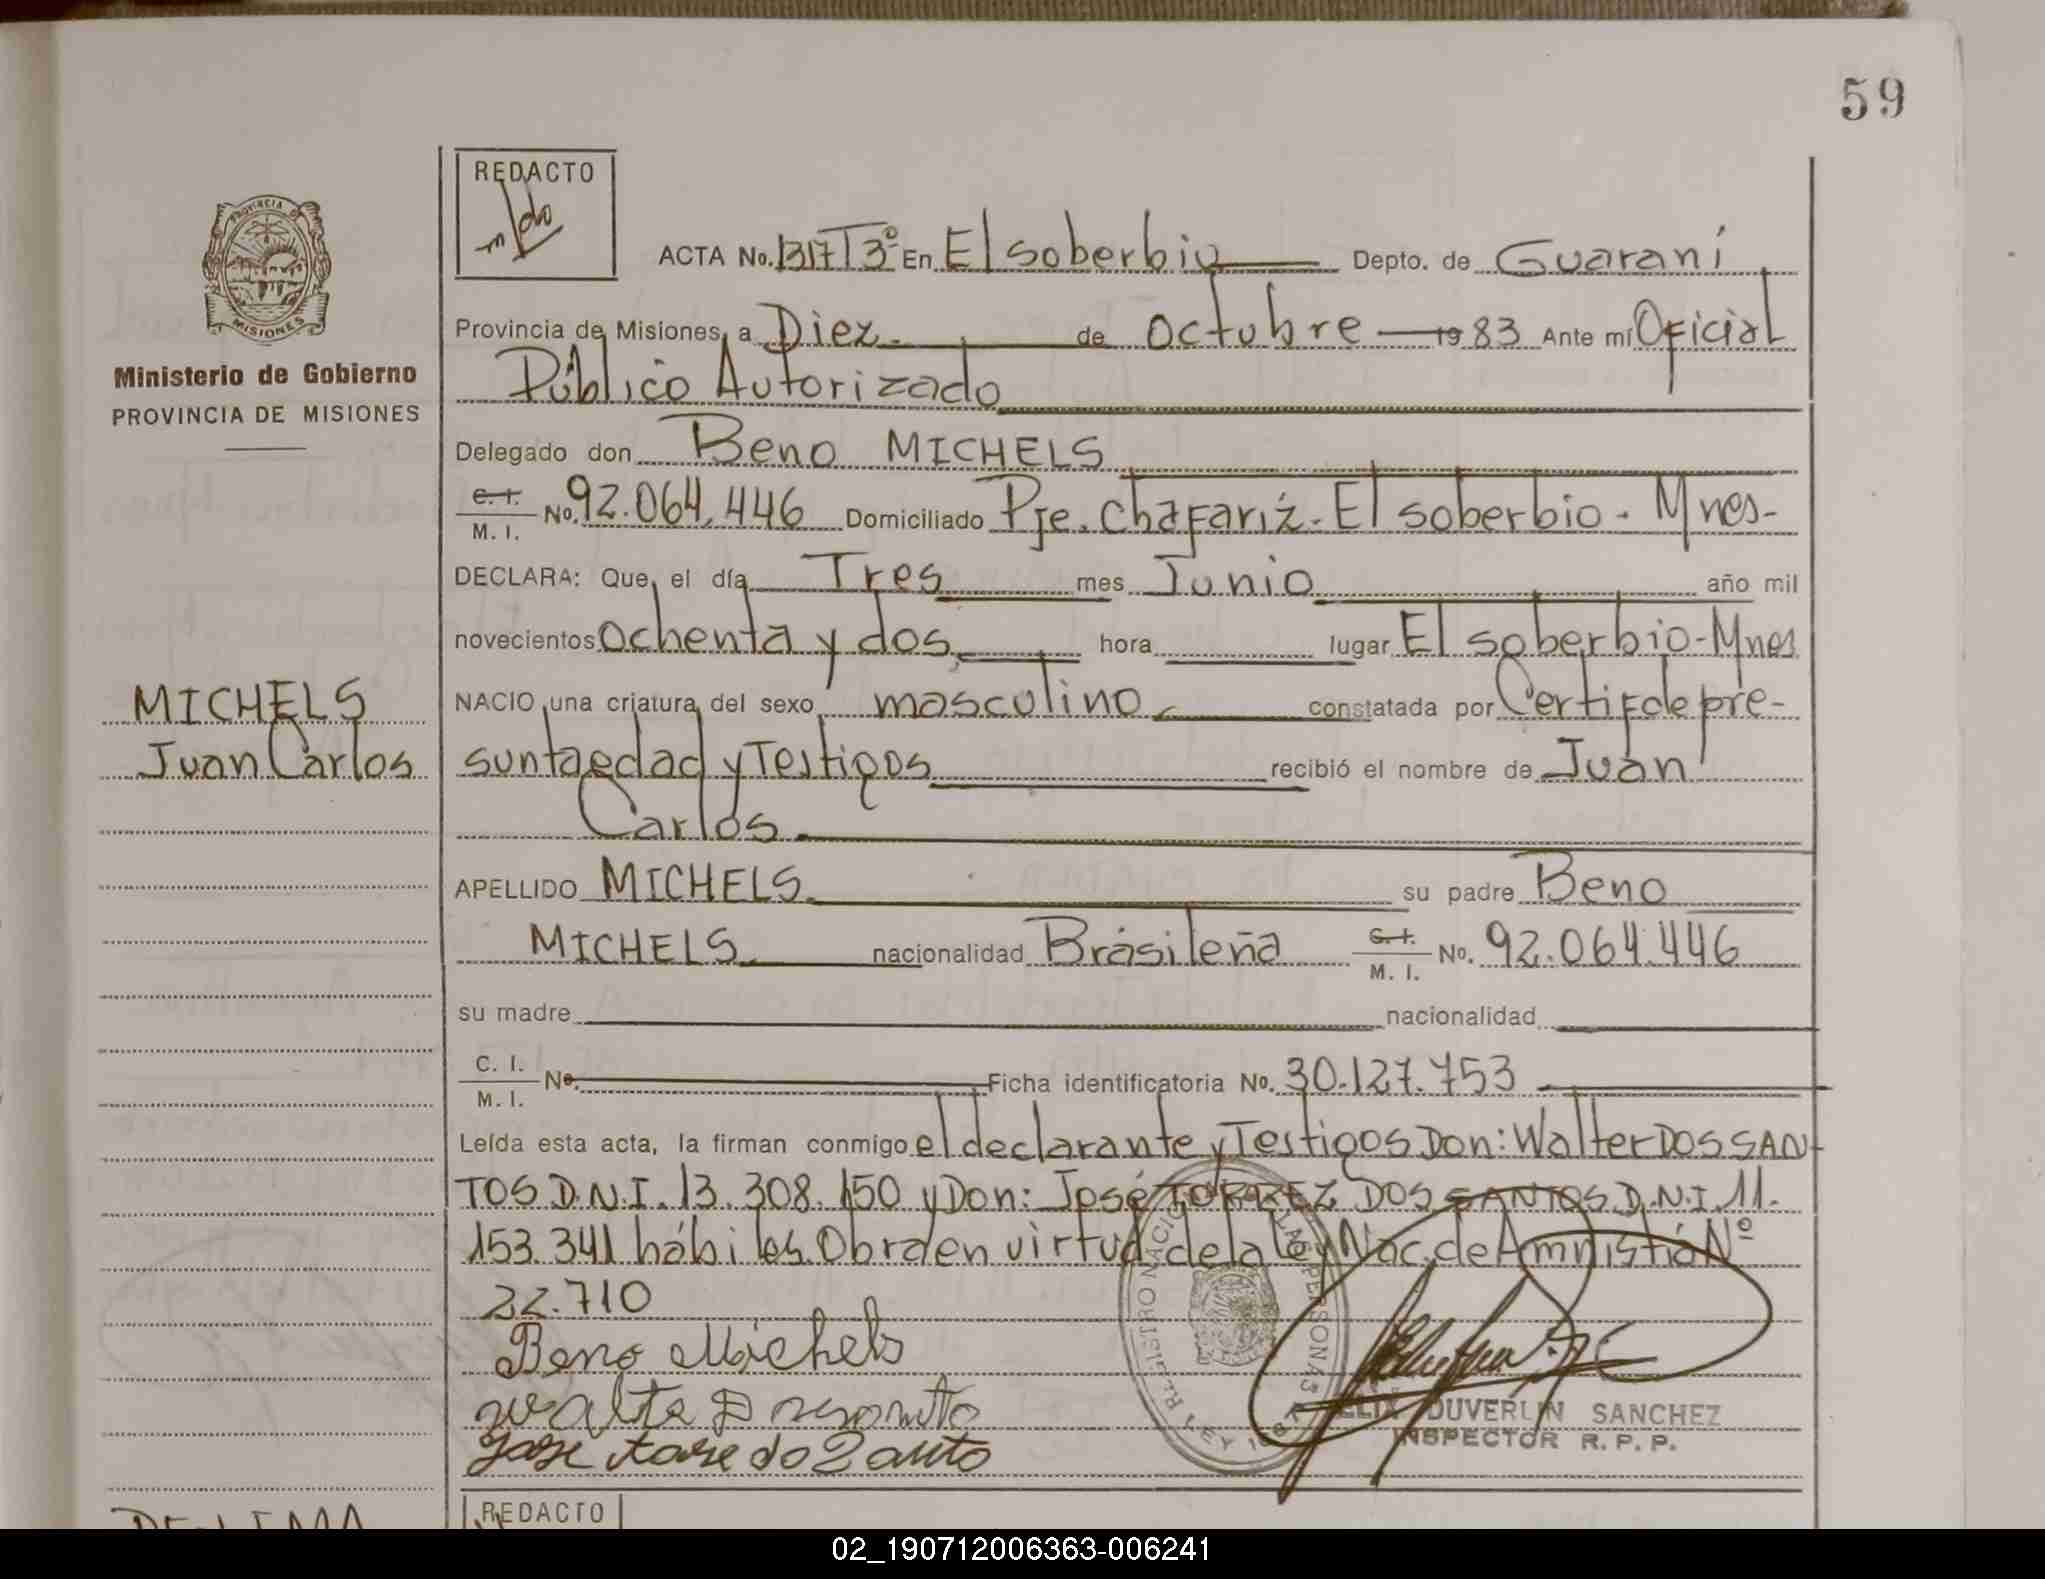 59
REDACTO
PROVINCIA DE
MISIONES
Ministerio de Gobierno
PROVINCIA DE MISIONES
ACTA No. 1317 T 3º En El soberbio Depto. de Guaraní
Provincia de Misiones, a Diez de octubre 1983 Ante mí Oficial
Público Autorizado
Delegado don Beno MICHELS
C. I. M. I. No. 92.064.446 Domiciliado Pje. Chafariz - El soberbio - Mnes-
DECLARA: Que, el día Tres mes Junio año mil
novecientos ochenta y dos hora lugar El soberbio - Mnes
NACIO una criatura del sexo masculino constatada por Certif de pre-
sunta edad y Testigos recibió el nombre de Juan
Carlos
MICHELS
Juan Carlos
APELLIDO MICHELS su padre Beno
MICHELS nacionalidad Brasileña C. I. M. I. No. 92.064.446
su madre nacionalidad
C. I. M. I. No. Ficha identificatoria No. 30.127.753
Leída esta acta, la firman conmigo el declarante y Testigos Don: Walter DOS SAN
TOS D.N.I. 13.308.150 y Don: José TORREZ DOS SANTOS D.N.I 11.
153.341 hábiles. Obra en virtud de la ley Nac. de Amnistía Nº
22.710
Beno Michels
REGISTRO NACIONAL DE LAS PERSONAS
LEY
FELIX DUVERLIN SANCHEZ
INSPECTOR R. P. P.
REDACTO
02_190712006363-006241